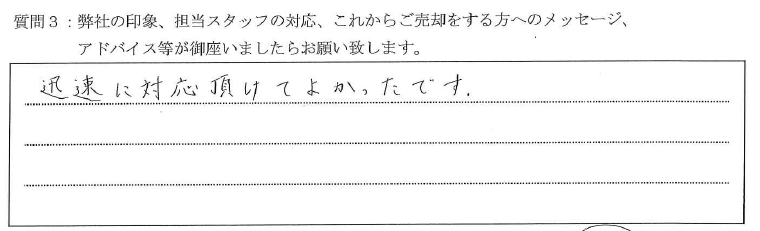 質問３：弊社の印象、担当スタッフの対応、これからご売却をする方へのメッセージ、
アドバイス等が御座いましたらお願い致します。
迅速に対応頂けてよかったです.